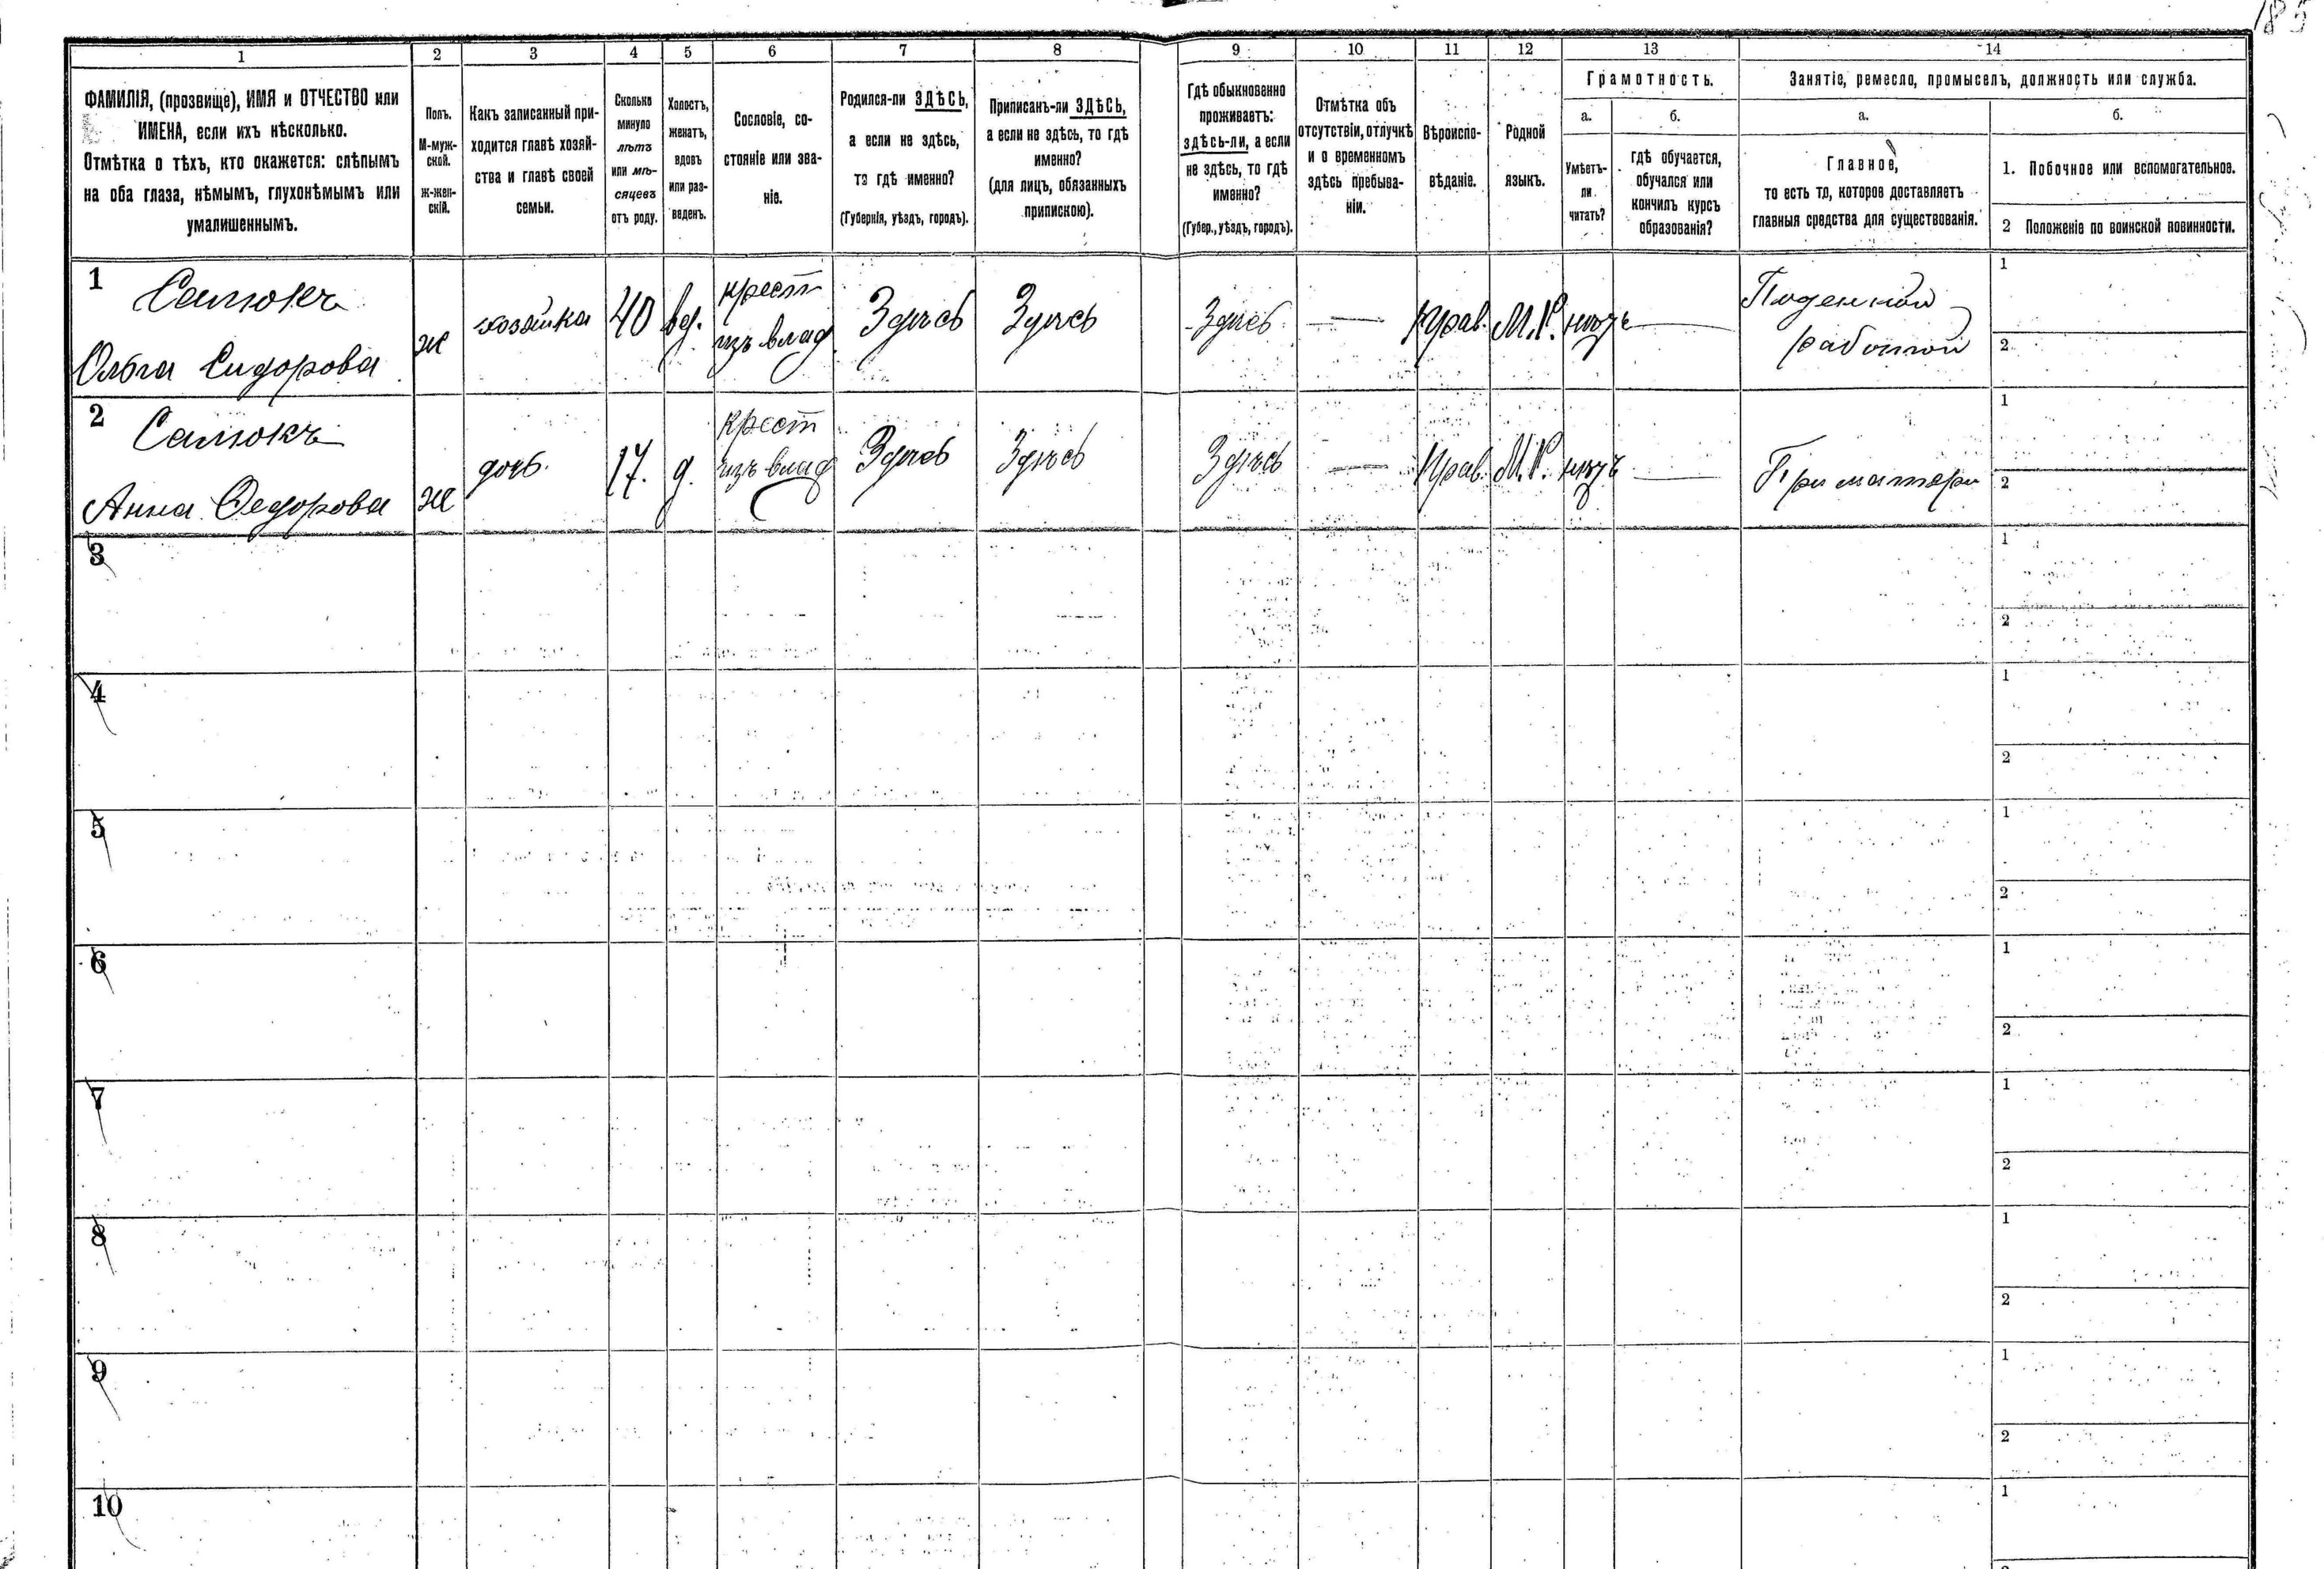 185
1 2 3 4 5 6 7 8 9 10 11 12 13 14
ФАМИЛІЯ, (прозвище), ИМЯ и ОТЧЕСТВО или
ИМЕНА, если ихъ нѣсколько.
Отмѣтка о тѣхъ, кто окажется: слѣпымъ
на оба глаза, нѣмымъ, глухонѣмымъ или
умалишеннымъ.
Полъ.
М-муж-
ской.
Ж-жен-
скій.
Какъ записанный при-
ходится главѣ хозяй-
ства и главѣ своей
семьи.
Сколько
минуло
лѣтъ
или мѣ-
сяцевъ
отъ роду.
Холостъ,
женатъ,
вдовъ
или раз-
веденъ.
Сословіе, со-
стояніе или зва-
ніе.
Родился-ли ЗДѢСЬ,
а если не здѣсь,
то гдѣ именно?
(Губернія, уѣздъ, городъ).
Приписанъ-ли ЗДѢСЬ,
а если не здѣсь, то гдѣ
именно?
(для лицъ, обязанныхъ
припискою).
Гдѣ обыкновенно
проживаетъ:
здѣсь-ли, а если
не здѣсь, то гдѣ
именно?
(Губер., уѣздъ, городъ).
Отмѣтка объ
отсутствіи, отлучкѣ
и о временномъ
здѣсь пребыва-
ніи.
Вѣроиспо-
вѣданіе.
Родной
языкъ.
Грамотность.
а.
Умѣетъ-
ли
читать?
б.
гдѣ обучается,
обучался или
кончилъ курсъ
образованія?
Занятіе, ремесло, промыселъ, должность или служба.
а.
Главное,
то есть то, которое доставляетъ
главныя средства для существованія.
б.
1. Побочное или вспомогательное.
2 Положеніе по воинской повинности.
1 Самюкъ
Ольга Сидорова
ж
хозяйка
40
вд.
крест
изъ влад
Здѣсь
Здѣсь
Здѣсь
—
Прав.
М.Р.
нѣтъ
—
Поденной
работой
1
2
2 Самюкъ
Анна Федорова
ж
дочь.
17.
д.
крест
изъ влад
Здѣсь
Здѣсь
Здѣсь
—
Прав.
М.Р.
нѣтъ
—
При матери
1
2
3
1
2
4
1
2
5
1
2
6
1
2
7
1
2
8
1
2
9
1
2
10
1